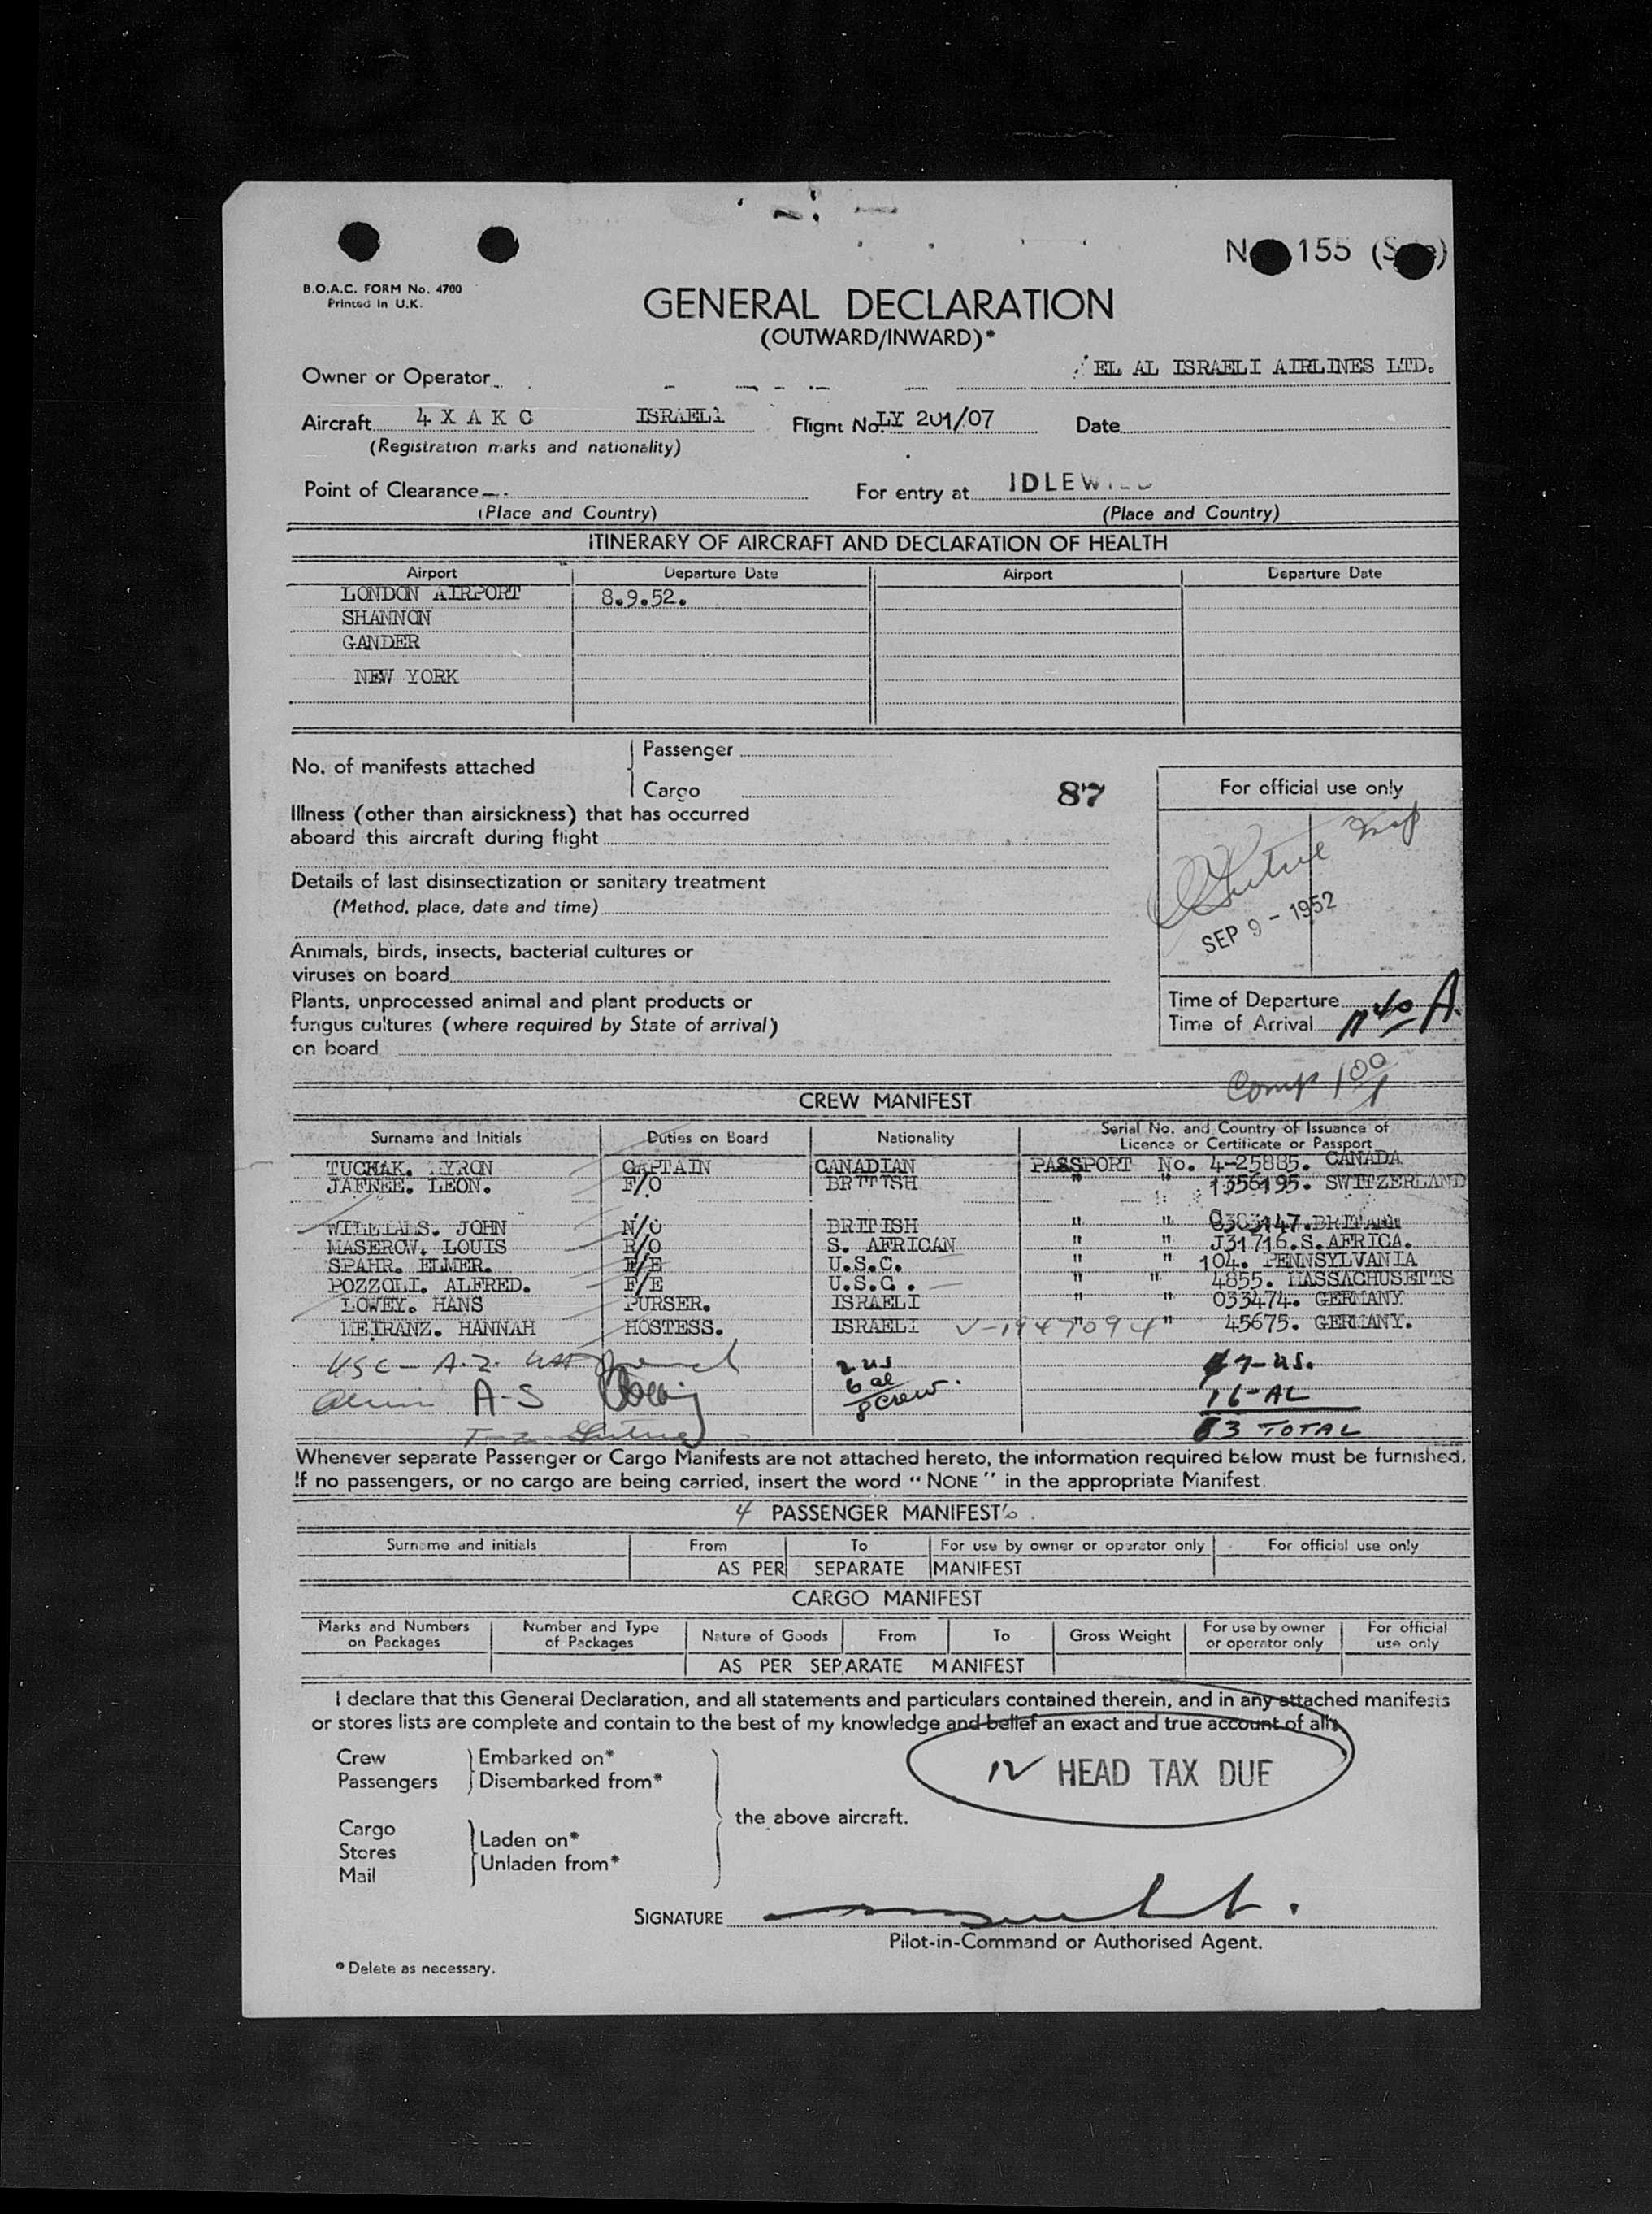 155
B.O.A.C. FORM No. 4700
Printed in U.K.
GENERAL DECLARATION
(OUTWARD/INWARD)*
Owner or Operator EL AL ISRAELI AIRLINES LTD.
Aircraft 4 X A K C ISRAELI Flight No. LY 201/07 Date
(Registration marks and nationality)
Point of Clearance For entry at IDLEWILD
(Place and Country) (Place and Country)
ITINERARY OF AIRCRAFT AND DECLARATION OF HEALTH
Airport Departure Date Airport Departure Date
LONDON AIRPORT 8.9.52.
SHANNON
GANDER
NEW YORK
No. of manifests attached
Passenger
Cargo
87
For official use only
Illness (other than airsickness) that has occurred
aboard this aircraft during flight
Details of last disinsectization or sanitary treatment
(Method, place, date and time)
SEP 9 - 1952
Animals, birds, insects, bacterial cultures or
viruses on board
Plants, unprocessed animal and plant products or
fungus cultures (where required by State of arrival)
on board
Time of Departure
Time of Arrival 11 40 A.
Comp 100/1
CREW MANIFEST
Surname and Initials Duties on Board Nationality Serial No. and Country of Issuance of
Licence or Certificate or Passport
TUCHAK. MYRON CAPTAIN CANADIAN PASSPORT No. 4-25885. CANADA
JAFFEE. LEON. F/O BRITISH " 1356195. SWITZERLAND
WILLIAMS. JOHN N/O BRITISH " " BRITAIN
MASEROW. LOUIS R/O S. AFRICAN " " J31716. S. AFRICA.
SPAHR. ELMER. F/E U.S.C. " " 104. PENNSYLVANIA
POZZOLI. ALFRED. F/E U.S.C. " " 4855. MASSACHUSETTS
LOWEY. HANS PURSER. ISRAELI " " 033474. GERMANY
MEIRANZ. HANNAH HOSTESS. ISRAELI V-1947094 " " 45675. GERMANY.
USC - A.2. 2 US 7-US.
A-S 6 al 16-AL
8 crew. 3 TOTAL
Whenever separate Passenger or Cargo Manifests are not attached hereto, the information required below must be furnished.
If no passengers, or no cargo are being carried, insert the word "NONE" in the appropriate Manifest.
4 PASSENGER MANIFEST's
Surname and initials From To For use by owner or operator only For official use only
AS PER SEPARATE MANIFEST
CARGO MANIFEST
Marks and Numbers on Packages Number and Type of Packages Nature of Goods From To Gross Weight For use by owner or operator only For official use only
AS PER SEPARATE MANIFEST
I declare that this General Declaration, and all statements and particulars contained therein, and in any attached manifests
or stores lists are complete and contain to the best of my knowledge and belief an exact and true account of all
Crew
Passengers
Embarked on*
Disembarked from*
12 HEAD TAX DUE
the above aircraft.
Cargo
Stores
Mail
Laden on*
Unladen from*
SIGNATURE
Pilot-in-Command or Authorised Agent.
* Delete as necessary.